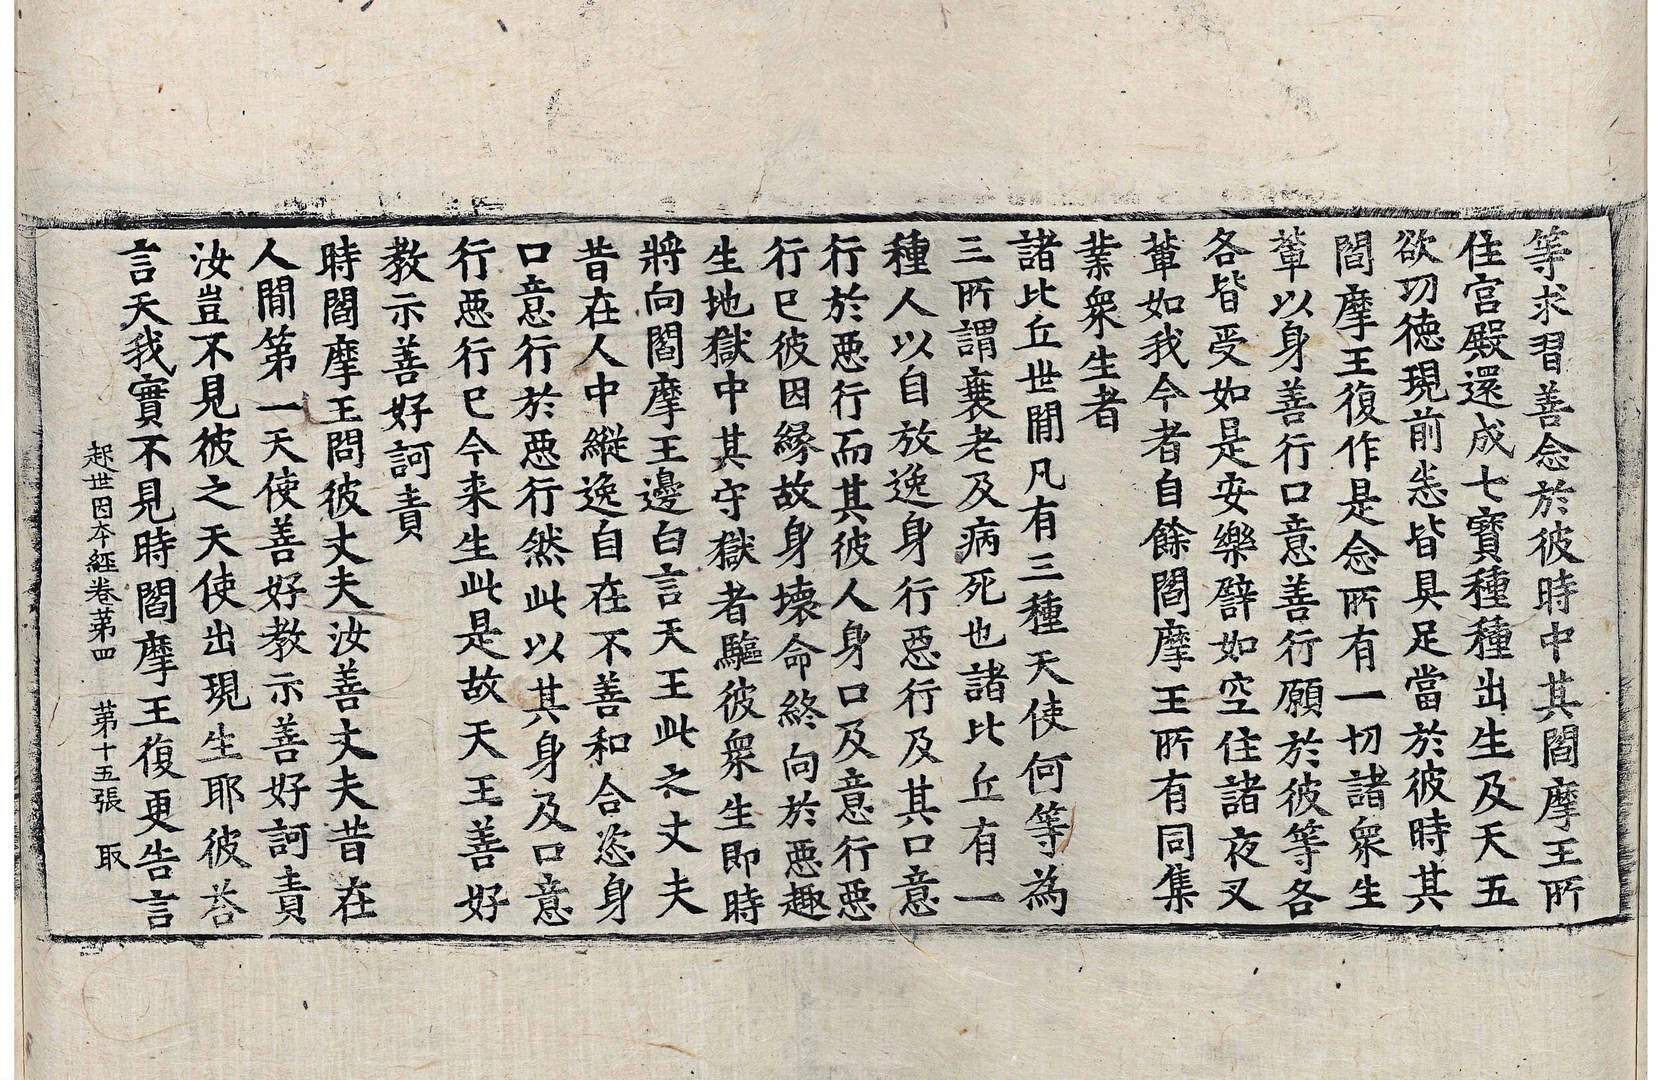 等求習善念於彼時中其閻摩王所
住宮殿還成七寶種種出生及天五
欲功德現前悉皆具足當於彼時其
閻摩王復作是念所有一切諸衆生
輩以身善行口意善行願於彼等各
各皆受如是安樂譬如空住諸夜叉
輩如我今者自餘閻摩王所有同集
業衆生者
諸比丘世閒凡有三種天使何等為
三所謂衰老及病死也諸比丘有一
種人以自放逸身行惡行及其口意
行於惡行而其彼人身口及意行惡
行已彼因緣故身壞命終向於惡趣
生地獄中其守獄者驅彼衆生即時
將向閻摩王邊白言天王此之丈夫
昔在人中縱逸自在不善和合恣身
口意行於惡行然此以其身及口意
行惡行已今来生此是故天王善好
教示善好訶責
時閻摩王問彼丈夫汝善丈夫昔在
人閒第一天使善好教示善好訶責
汝豈不見彼之天使出現生耶彼荅
言天我實不見時閻摩王復更告言
起世因本經卷第四 第十五張 取